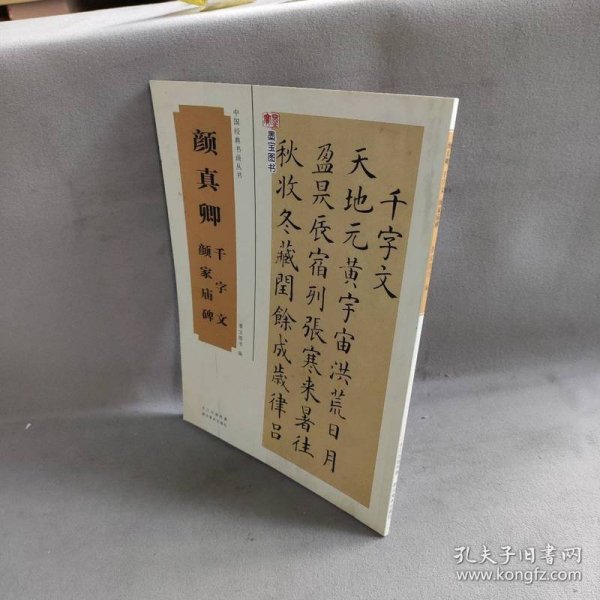 千字文
天地元黄宇宙洪荒日月
盈昃辰宿列張寒来暑往
秋收冬藏閏餘成歲律吕
墨宝图书
中国经典书画丛书
颜真卿
千字文
颜家庙碑
墨宝图书 编
孔夫子旧书网
www.kongfz.com